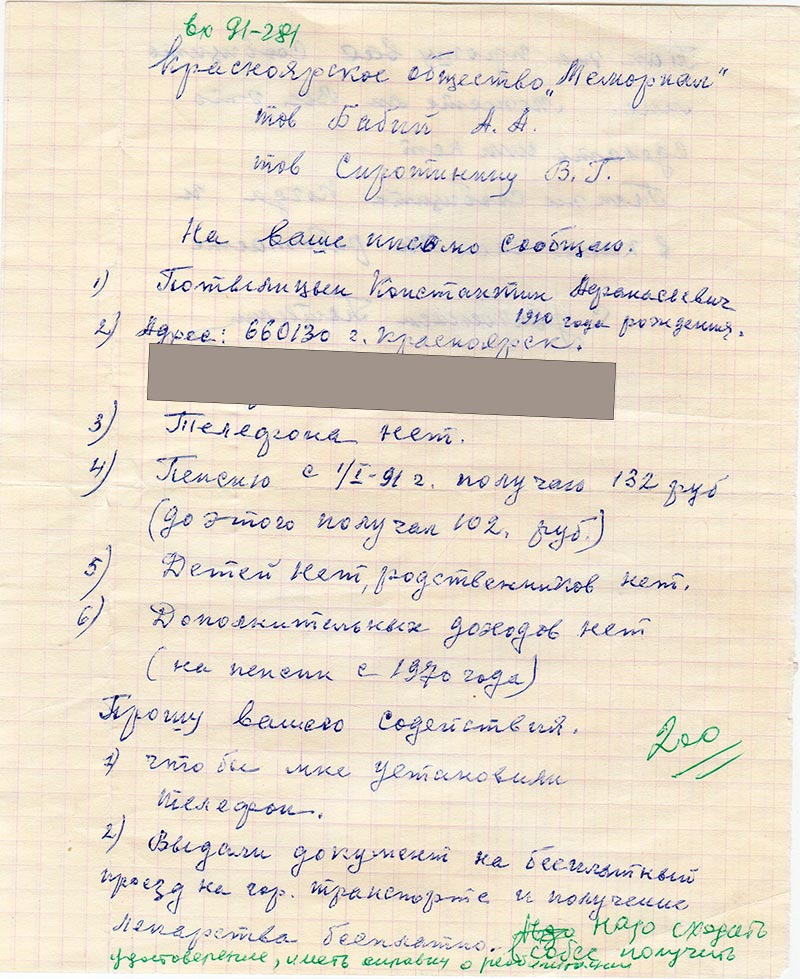 вх 91-281
Красноярское общество „Мемориал"
тов Бабий А. А.
тов Сиротинину В. Г.
На ваше писмо сообщаю:
1) Потылицын Константин Афанасиевич
1910 года рождения.
2) Адрес: 660130 г. Красноярск.
3) Телефона нет.
4) Пенсию с 1/I-91 г. получаю 132 руб
(до этого получал 102, руб.)
5) Детей нет, родственников нет.
6) Дополнительных доходов нет
(на пенсии с 1970 года)
Прошу вашего содействия.
200
1) что бы мне установили
телефон.
2) Выдали документ на бесплатный
проезд на гор. транспорте и получение
лекарства бесплатно. надо сходить
в собес получить
удостоверение, иметь справку о реабилитации